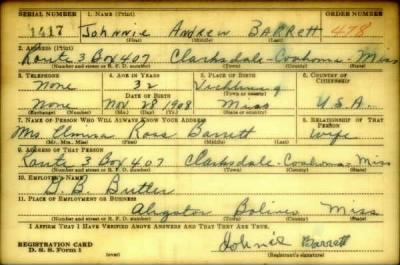 SERIAL NUMBER 1. NAME (Print) ORDER NUMBER
1417 Johnnie Andrew BARRett 478
(First) (Middle) (Last)
2. ADDRESS (Print)
Route 3 Box 407 Clarksdale - Coahoma - Miss
(Number and street or R. F. D. number) (Town) (County) (State)
3. TELEPHONE 4. AGE IN YEARS 5. PLACE OF BIRTH 6. COUNTRY OF CITIZENSHIP
None 32 Vicksburg
DATE OF BIRTH (Town or county)
None Nov 28 1908 Miss U.S.A.
(Exchange) (Number) (Mo.) (Day) (Yr.) (State or country)
7. NAME OF PERSON WHO WILL ALWAYS KNOW YOUR ADDRESS 8. RELATIONSHIP OF THAT PERSON
Mrs. Ross Barrett Wife
(Mr., Mrs., Miss) (First) (Middle) (Last)
9. ADDRESS OF THAT PERSON
Route 3 Box 407 Clarksdale - Coahoma - Miss
(Number and street or R. F. D. number) (Town) (County) (State)
10. EMPLOYER'S NAME
B. Butler
11. PLACE OF EMPLOYMENT OR BUSINESS
Aligator Bolivar Miss
(Number and street or R. F. D. number) (Town) (County) (State)
I AFFIRM THAT I HAVE VERIFIED ABOVE ANSWERS AND THAT THEY ARE TRUE.
REGISTRATION CARD Johnie Barrett
D. S. S. Form 1 (over) (Registrant's signature)